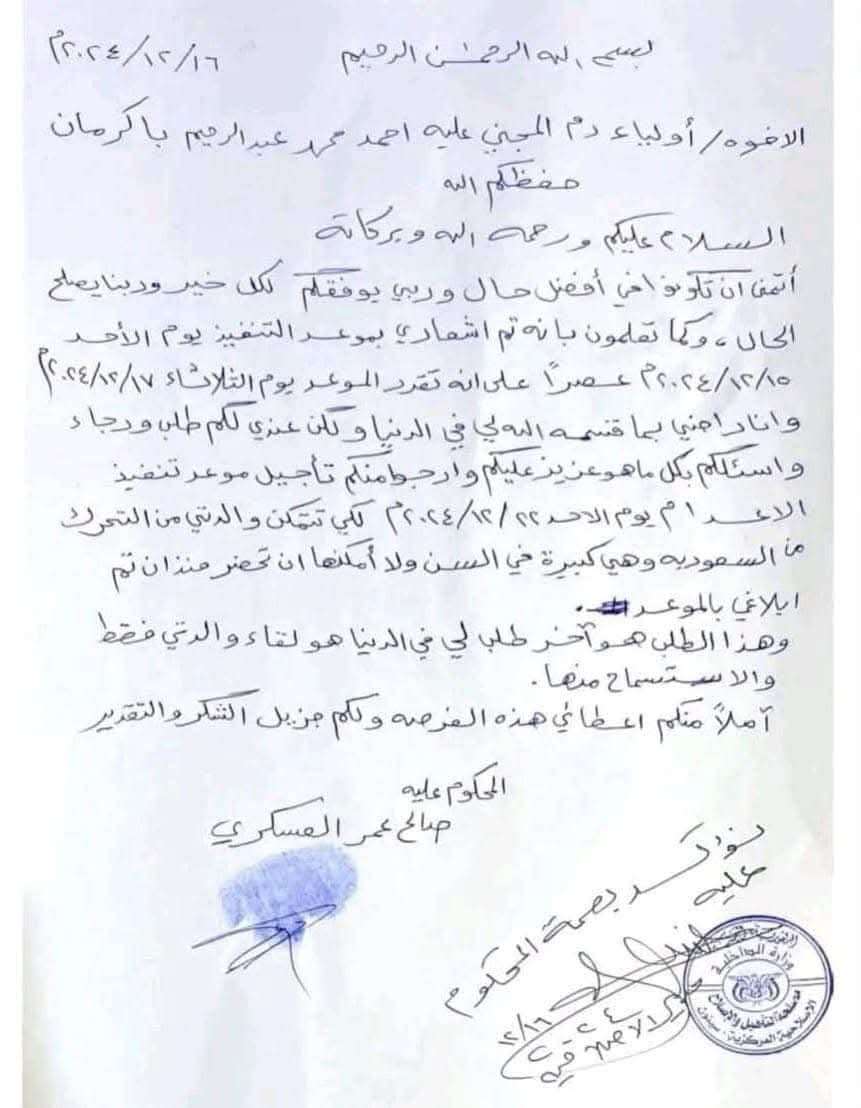 بسم الله الرحمن الرحيم ١٦/١٢/٢٠٢٤م
الاخوه/ أولياء دم المجني عليه احمد محمد عبدالرحيم باكرمان
حفظكم الله
السلام عليكم ورحمه الله وبركاتة
أتمنى ان تكونوا في أفضل حال وربي يوفقكم لكل خير وربنا يصلح
الحال، وكما تعلمون بانه تم اشعاري بموعد التنفيذ يوم الأحد
١٥/١٢/٢٠٢٤م عصراً على انه تقرر الموعد يوم الثلاثاء ١٧/١٢/٢٠٢٤م
وانا راضي بما قسمه الله لي في الدنيا ولكن عندي لكم طلب ورجاء
واسئلكم بكل ما هو عزيز عليكم وارجوا منكم تأجيل موعد تنفيذ
الاعدام يوم الاحد ٢٢/١٢/٢٠٢٤م لكي تتمكن والدتي من التحرك
من السعوديه وهي كبيرة في السن ولا أمكنها ان تحضر منذ ان تم
ابلاغي بالموعد.
وهذا الطلب هو آخر طلب لي في الدنيا هو لقاء والدتي فقط
والاستسماح منها.
آملاً منكم اعطائي هذه الفرصه ولكم جزيل الشكر والتقدير
المحكوم عليه
صالح عمر العسكري
نؤكد بصمة المحكوم
عليه
مدير الاصلاحية
١٦/١٢
٢٤
وزارة الداخلية
مصلحة التأهيل والإصلاح
الإصلاحية المركزية - سيئون